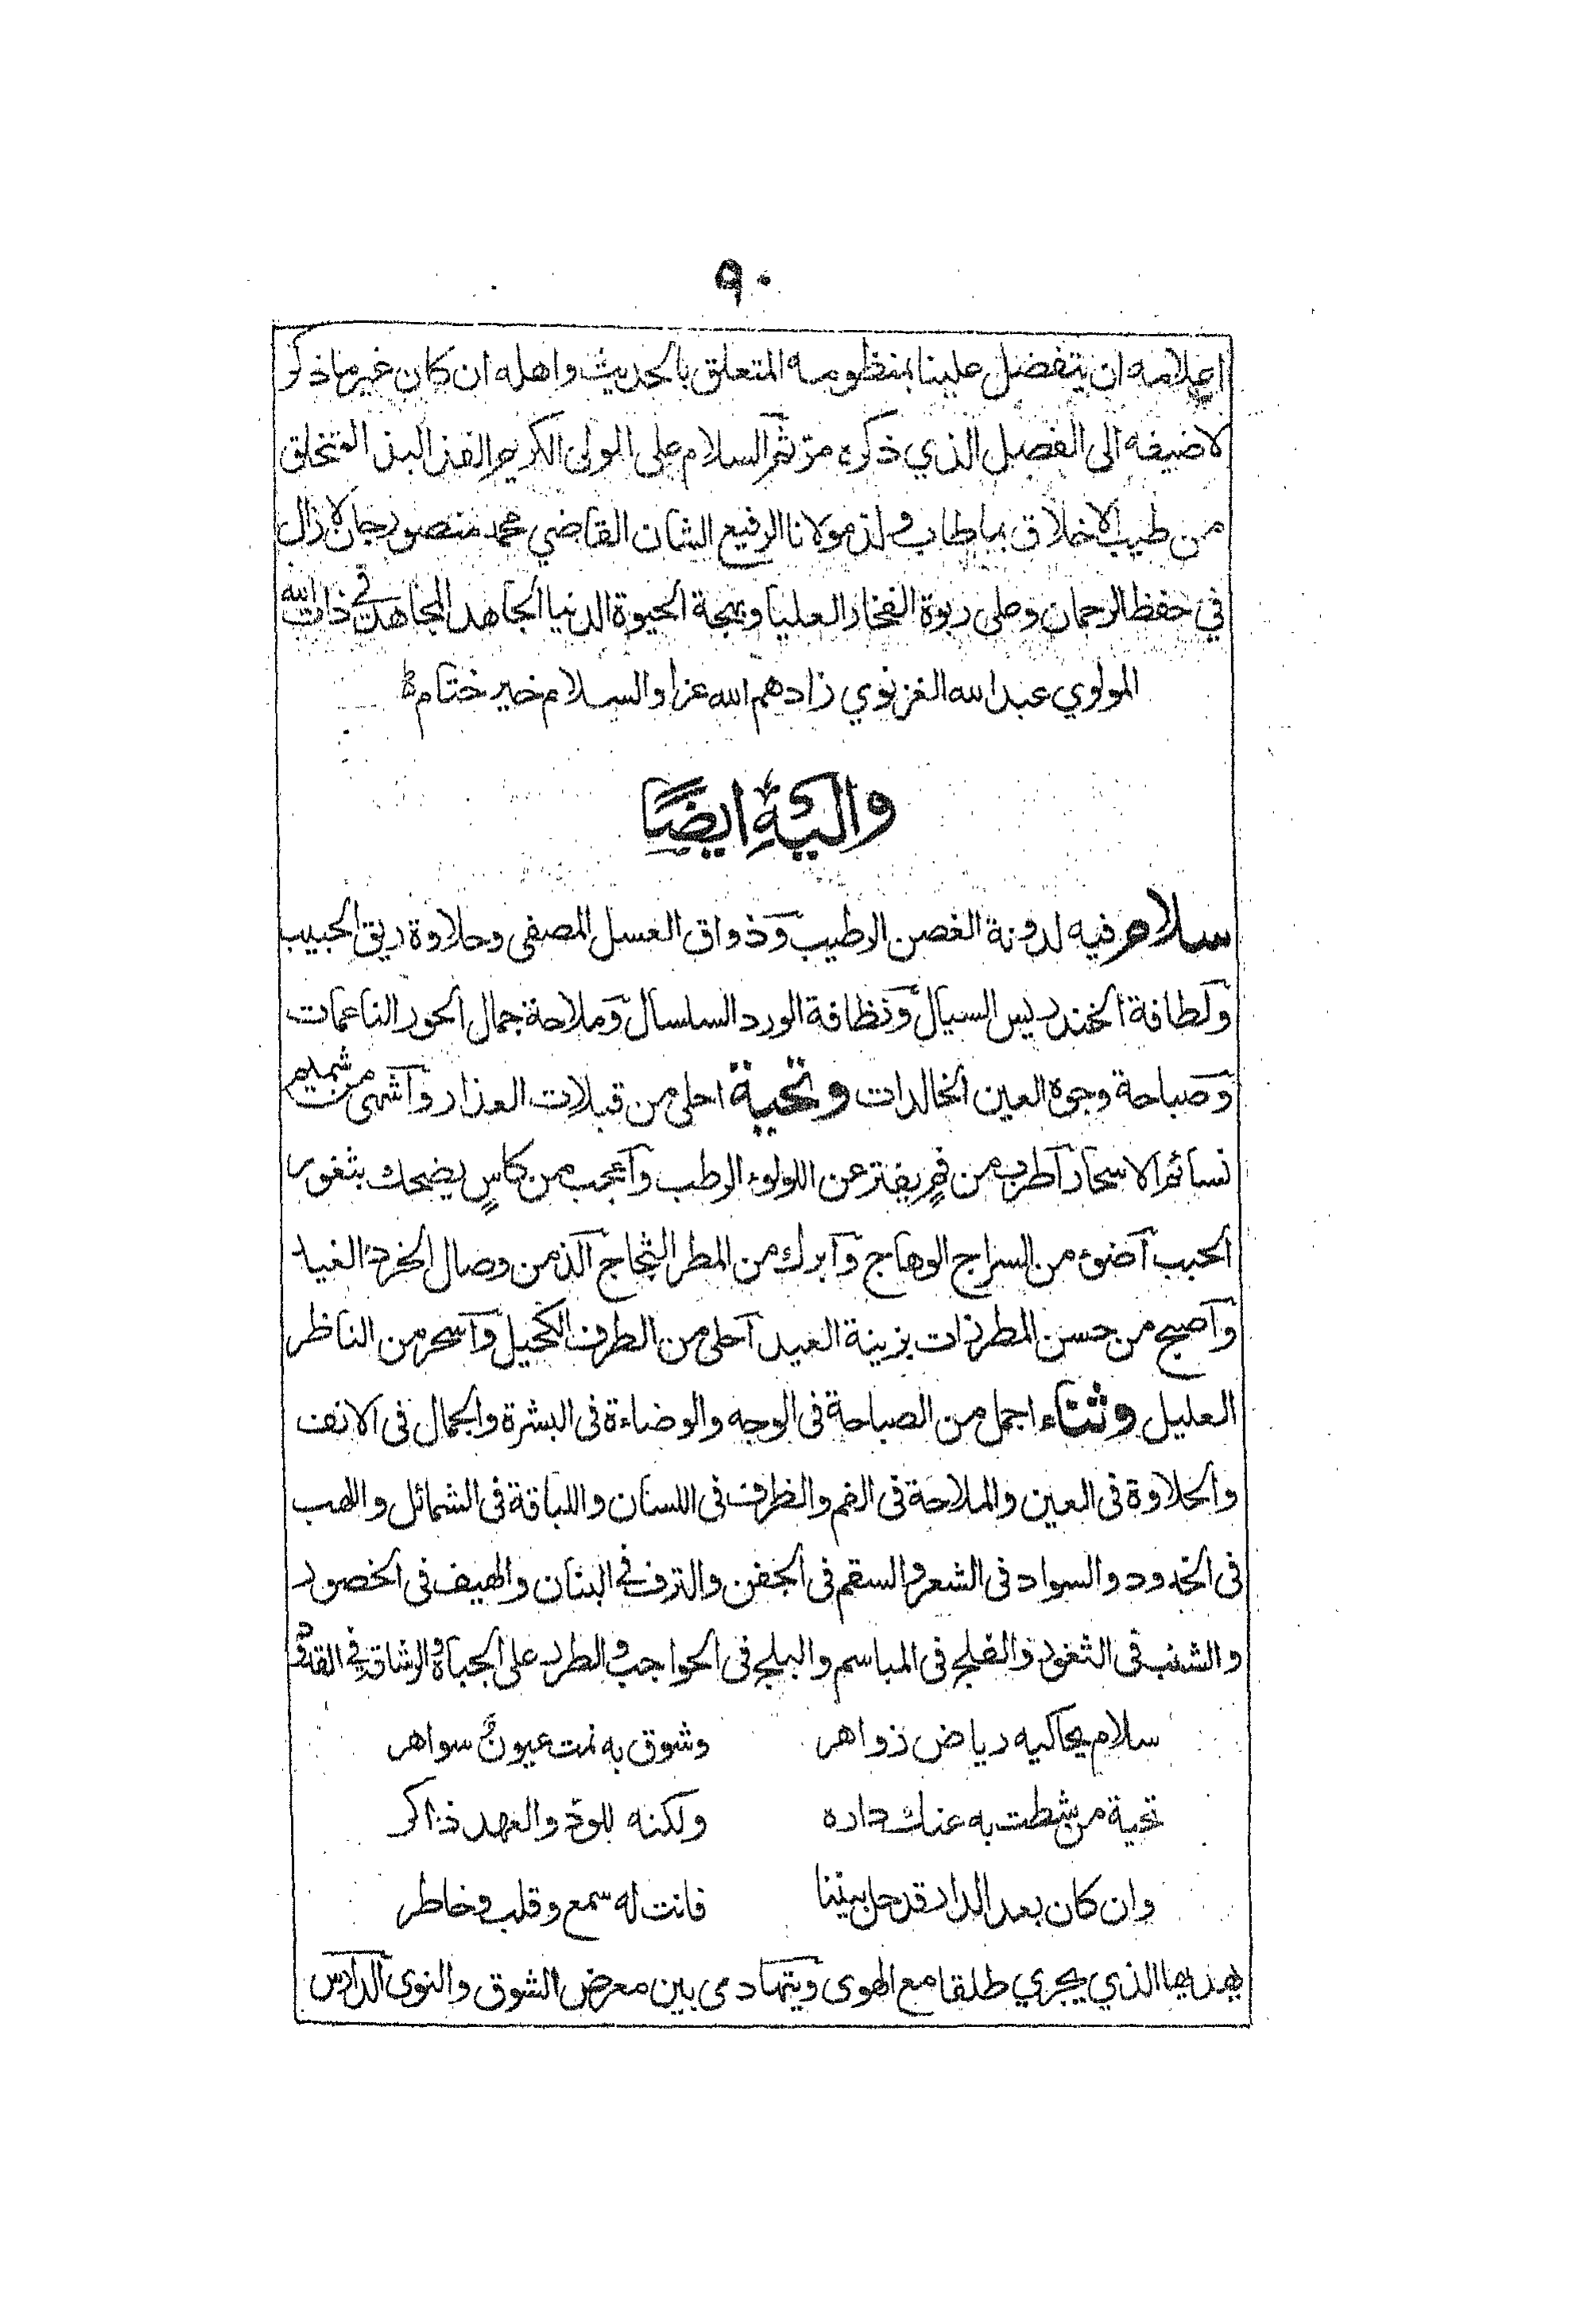 ٩٠
اعلامه ان يتفضل علينا بمنظومه المتعلق بالحديث واهله ان كان غير ما ذكر
لاضيفه الى الفصل الذي ذكره مر ثم السلام على المولى الكريم الفذ البذ المتخلق
من طيب الاخلاق بما طاب ولذ مولانا الرفيع الشان القاضي محمد منصور جان لا زال
في حفظ الرحمان وعلى ربوة الفخار العليا وبهجة الحيوة الدنيا الجاهد المجاهد في ذات الله
المولوي عبد الله الغزنوي زادهم الله عزا والسلام خير ختام
واليه ايضًا
سلام فيه لدونة الغصن الرطيب وذواق العسل المصفى وحلاوة ريق الحبيب
ولطافة الخندريس السيال ونظافة الورد السلسال وملاحة جمال الحور الناعمات
وصباحة وجوه العين الخالدات وتحية احلى من قبلات العذار وآشهى من شميم
نسائم الاسحار آطرب من فمٍ يفتر عن اللولوء الرطب وآعجب من كاسٍ يضحك بثغور
الحبب آضوء من السراج الوهاج وآبرك من المطر الثجاج آلذ من وصال الخرد الغيد
وآصبح من حسن المطرزات بزينة العيد آحلى من الطرف الكحيل وآسحر من الناظر
العليل وثناء اجمل من الصباحة فى الوجه والوضاءة فى البشرة والجمال فى الانف
والحلاوة فى العين والملاحة فى الفم والظرف فى اللسنان واللباقة فى الشمائل واللهب
فى الخدود والسواد فى الشعر والسقم فى الجفن والترف فى البنان والهيف فى الخصور
والشنب فى الثغور والفلج فى المباسم والبلج فى الحواجب والطرر على الجباه والرشاقة فى القدود
سلام يحاكيه رياض زواهر وشوق به نمت عيونٌ سواهر
تحية من شطت به عنك داره ولكنه للودّ والعهد ذاكر
وان كان بعد الدار قد حل بيننا فانت له سمع وقلب وخاطر
يهديها الذي يجري طلقا مع الهوى ويتهادى بين معرض الشوق والنوى الدارس